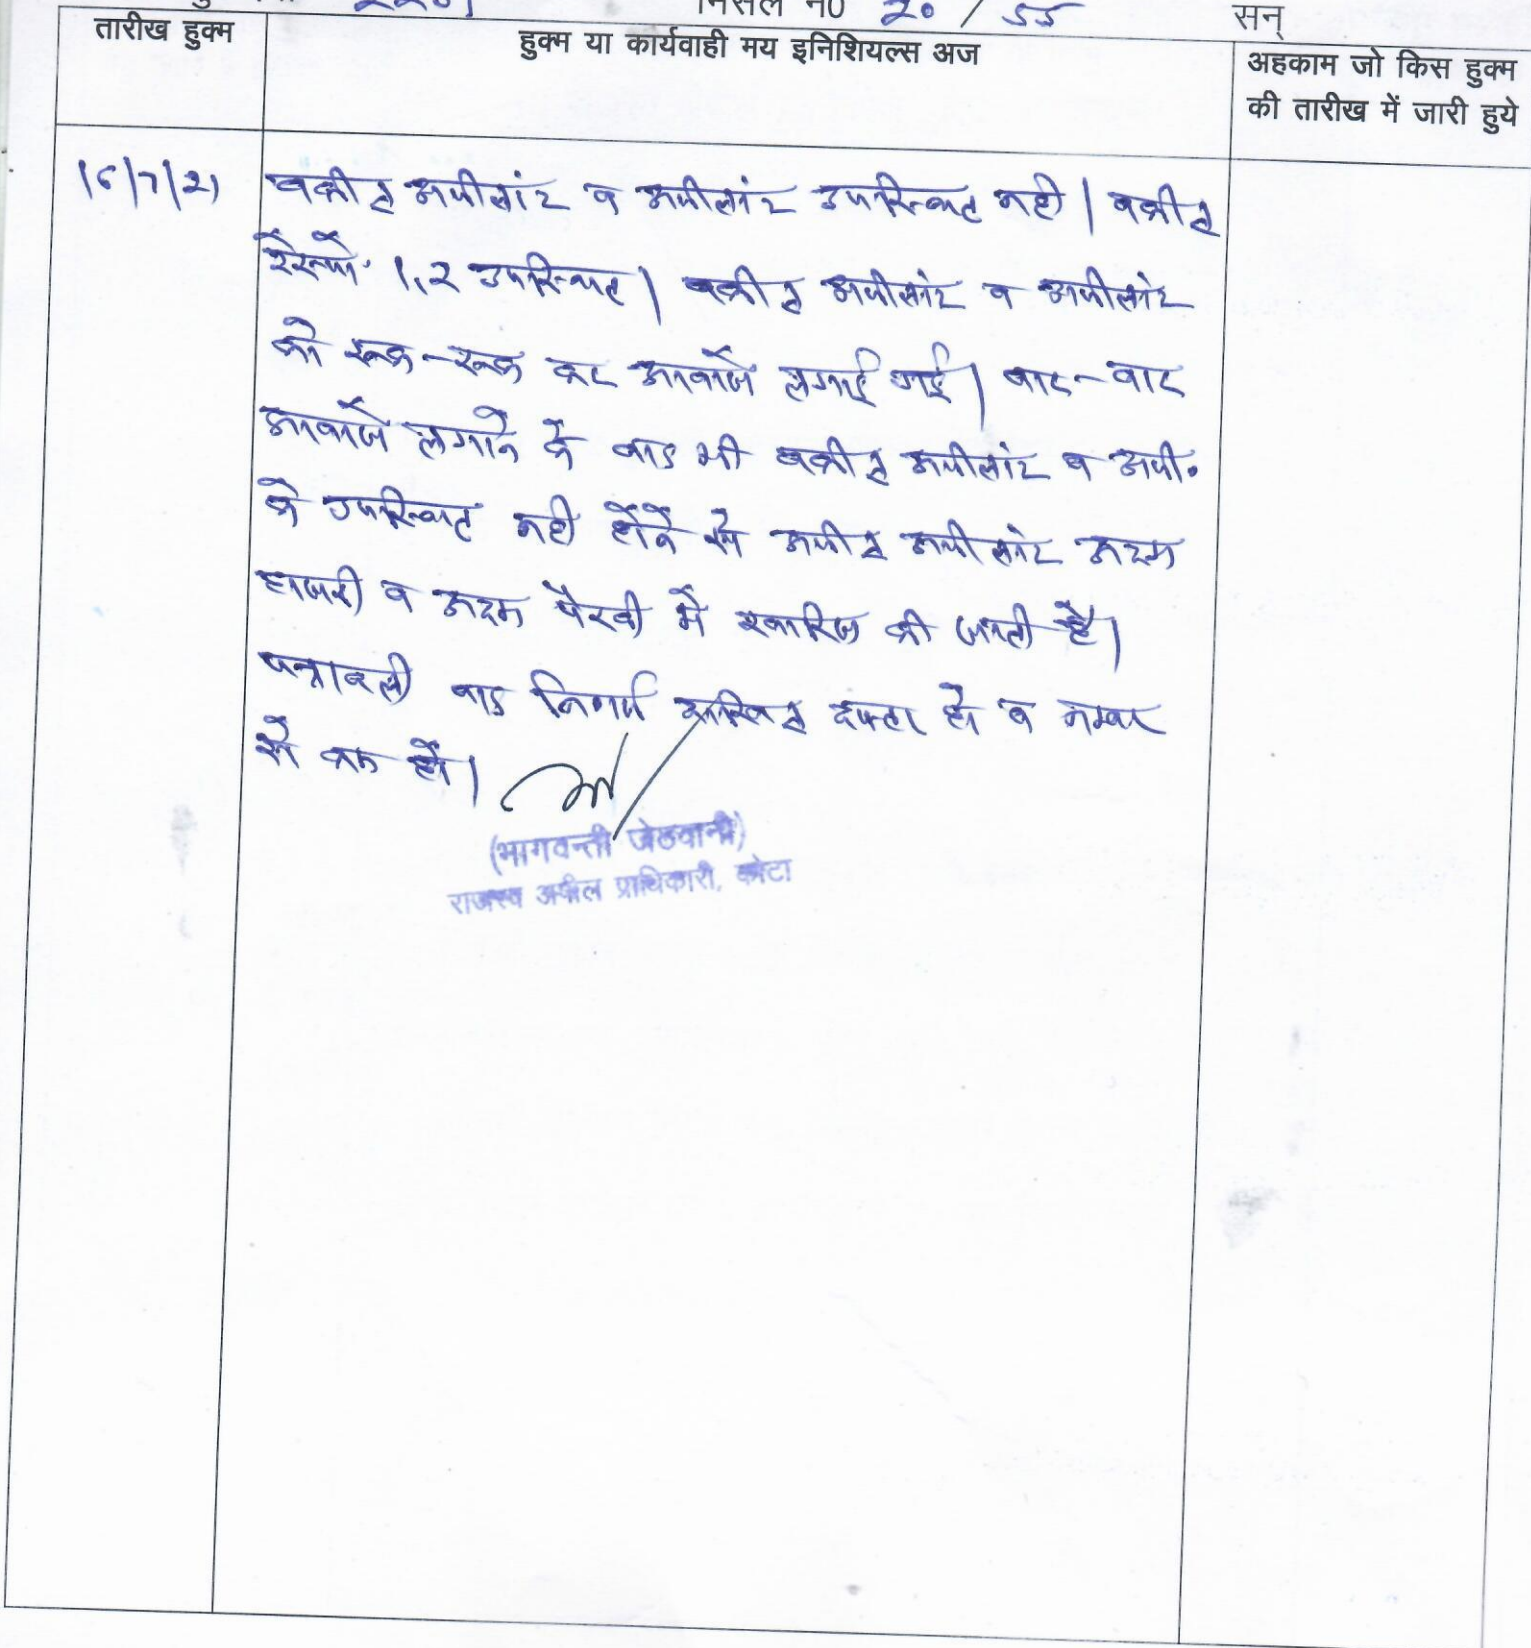 मिसल न0 20 / 55 सन्
तारीख हुक्म
हुक्म या कार्यवाही मय इनिशियल्स अज
अहकाम जो किस हुक्म
की तारीख में जारी हुये
16/7/21
वकील अपीलांट व अपीलांट उपस्थित नही। वकील
रेस्पो. 1,2 उपस्थित। वकील अपीलांट व अपीलांट
को रूक-रूक कर आवाजे लगाई गई। बार-बार
आवाजे लगाने के बाद भी वकील अपीलांट व अपी.
के उपस्थित नही होने से अपील अपीलांट अदम
हाजरी व अदम पैरवी में खारिज की जाती है।
पत्रावली बाद निर्णय दाखिल दफ्तर हो व नम्बर
से कम हो।
(भागवन्ती जेठवानी)
राजस्व अपील प्राधिकारी, कोटा